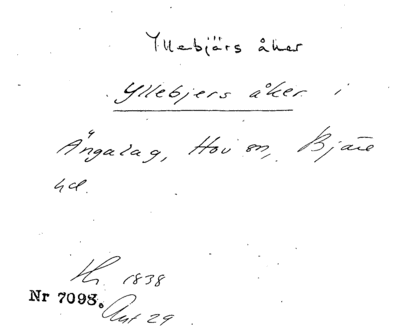 Yllebjärs åker
Yllebjers åker i
Ängalag, Hov sn, Bjäre
hd.
Hs. 1838
Nr 7098.
Ant 29